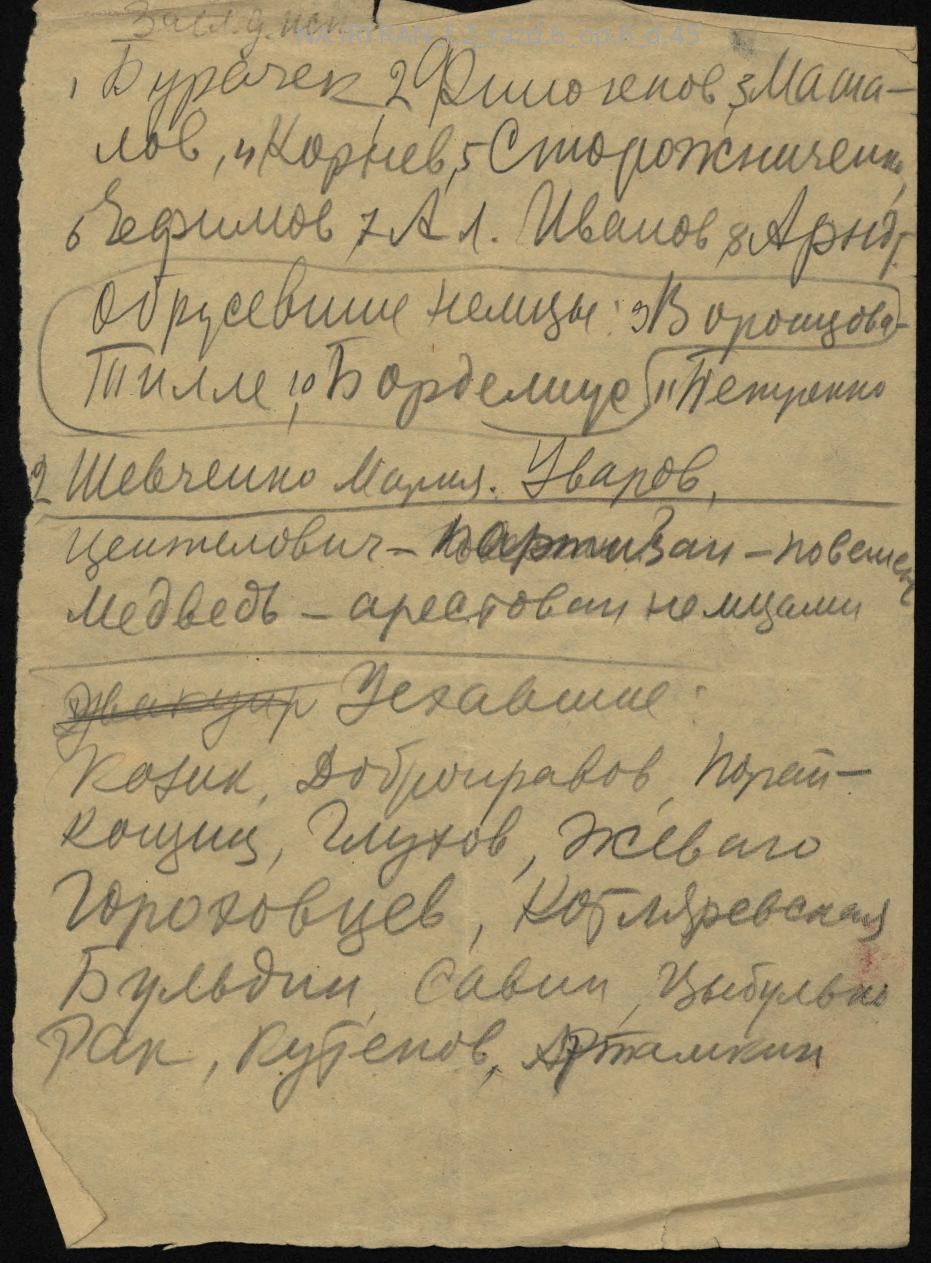 1 Бурачек 2 Филогенов, 3 Маша-
лов, 4 Корнев, 5 Сторожниченко,
6 Ефимов 7 Ал. Иванов 8 Арндт.
Обрусевшие немцы: 9 Воронцова-
Тилле, 10 Борделиус 11 Петренко
2 Шевченко Мария. Уваров,
партизан – повешен
Медведь – арестован немцами
эвакуир Уехавшие:
Козик, Добронравов,
Глухов, Жеваго
Гороховцев, Котляревская
Бульдин, Савин, Цыбулько
Рак, Кутепов, Артамкин